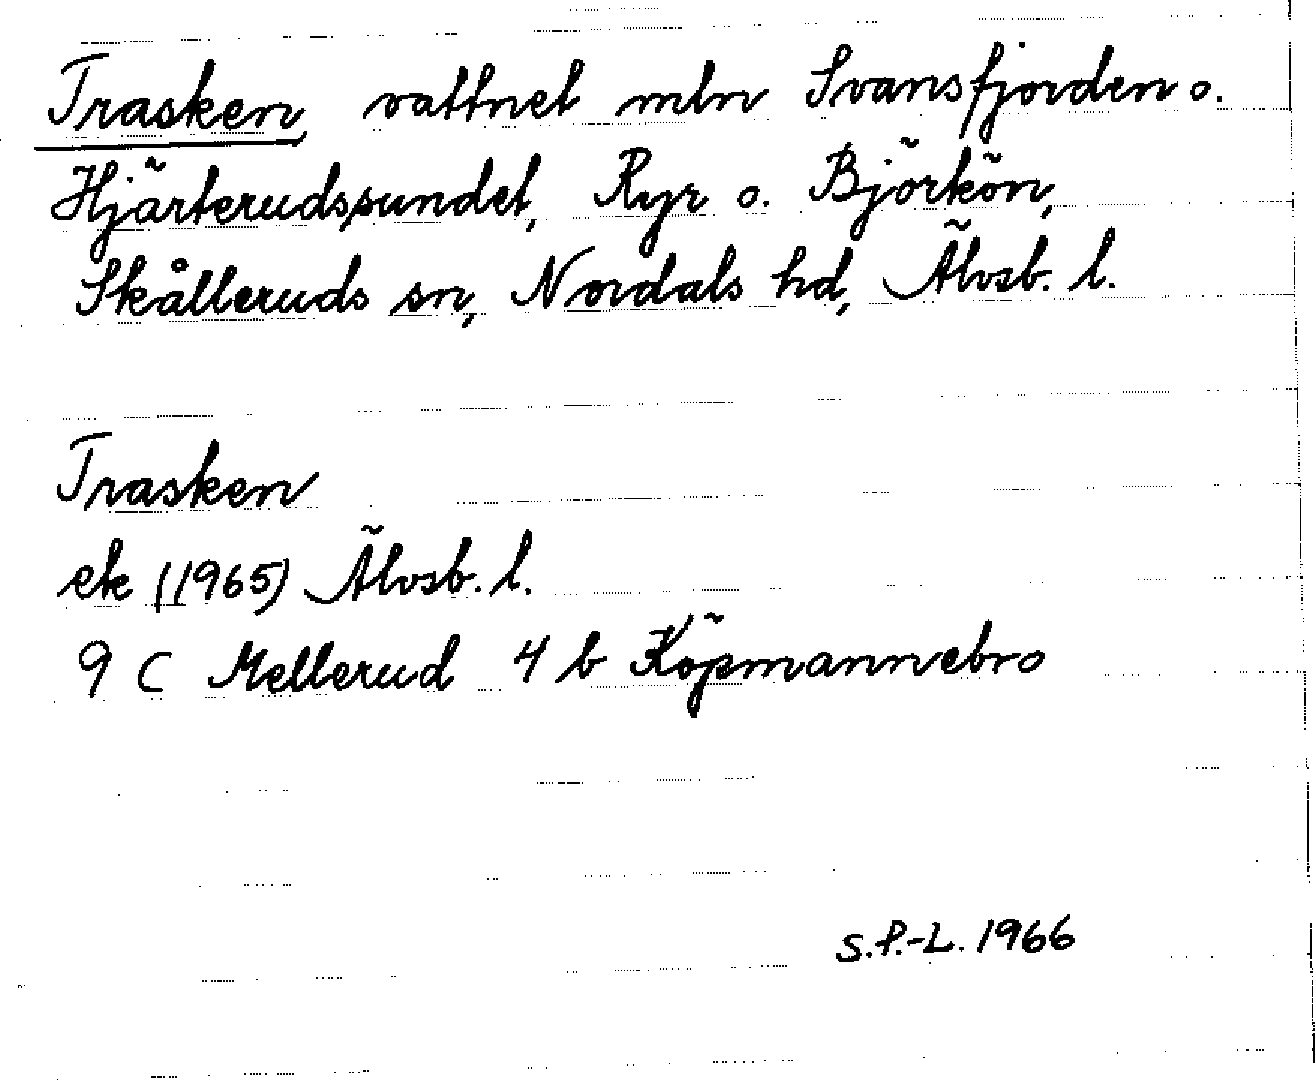 Trasken, vattnet mln Svansfjorden o.
Hjärterudssundet, Ryr o. Björkön,
Skålleruds sn, Nordals hd, Älvsb. l.
Trasken
ek (1965) Älvsb. l.
9 C Mellerud 4 b Köpmannebro
S.P.-L. 1966